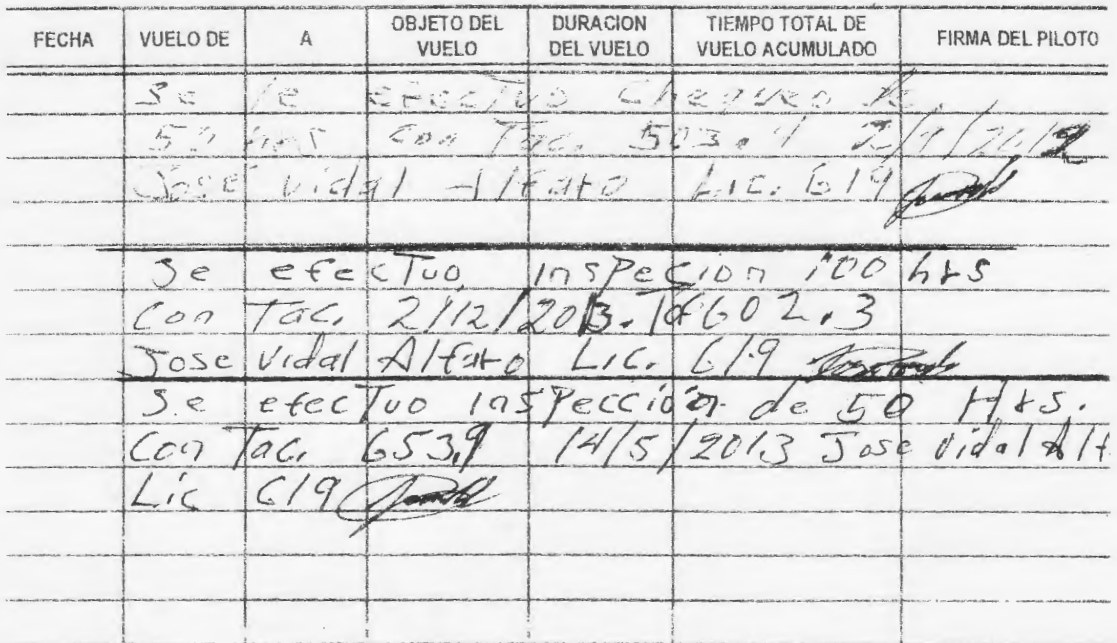 FECHA VUELO DE A OBJETO DEL VUELO DURACION DEL VUELO TIEMPO TOTAL DE VUELO ACUMULADO FIRMA DEL PILOTO
Se le efectuo chequeo de
50 hrs con Tac. 503.9
Jose Vidal Alfaro Lic. 619
Se efectuo inspecion 100 hrs
Con Tac. 2/12/2013. 602.3
Jose Vidal Alfaro Lic. 619
Se efectuo inspección de 50 Hrs.
Con Tac. 653.9 14/5/2013 Jose Vidal Alf
Lic 619